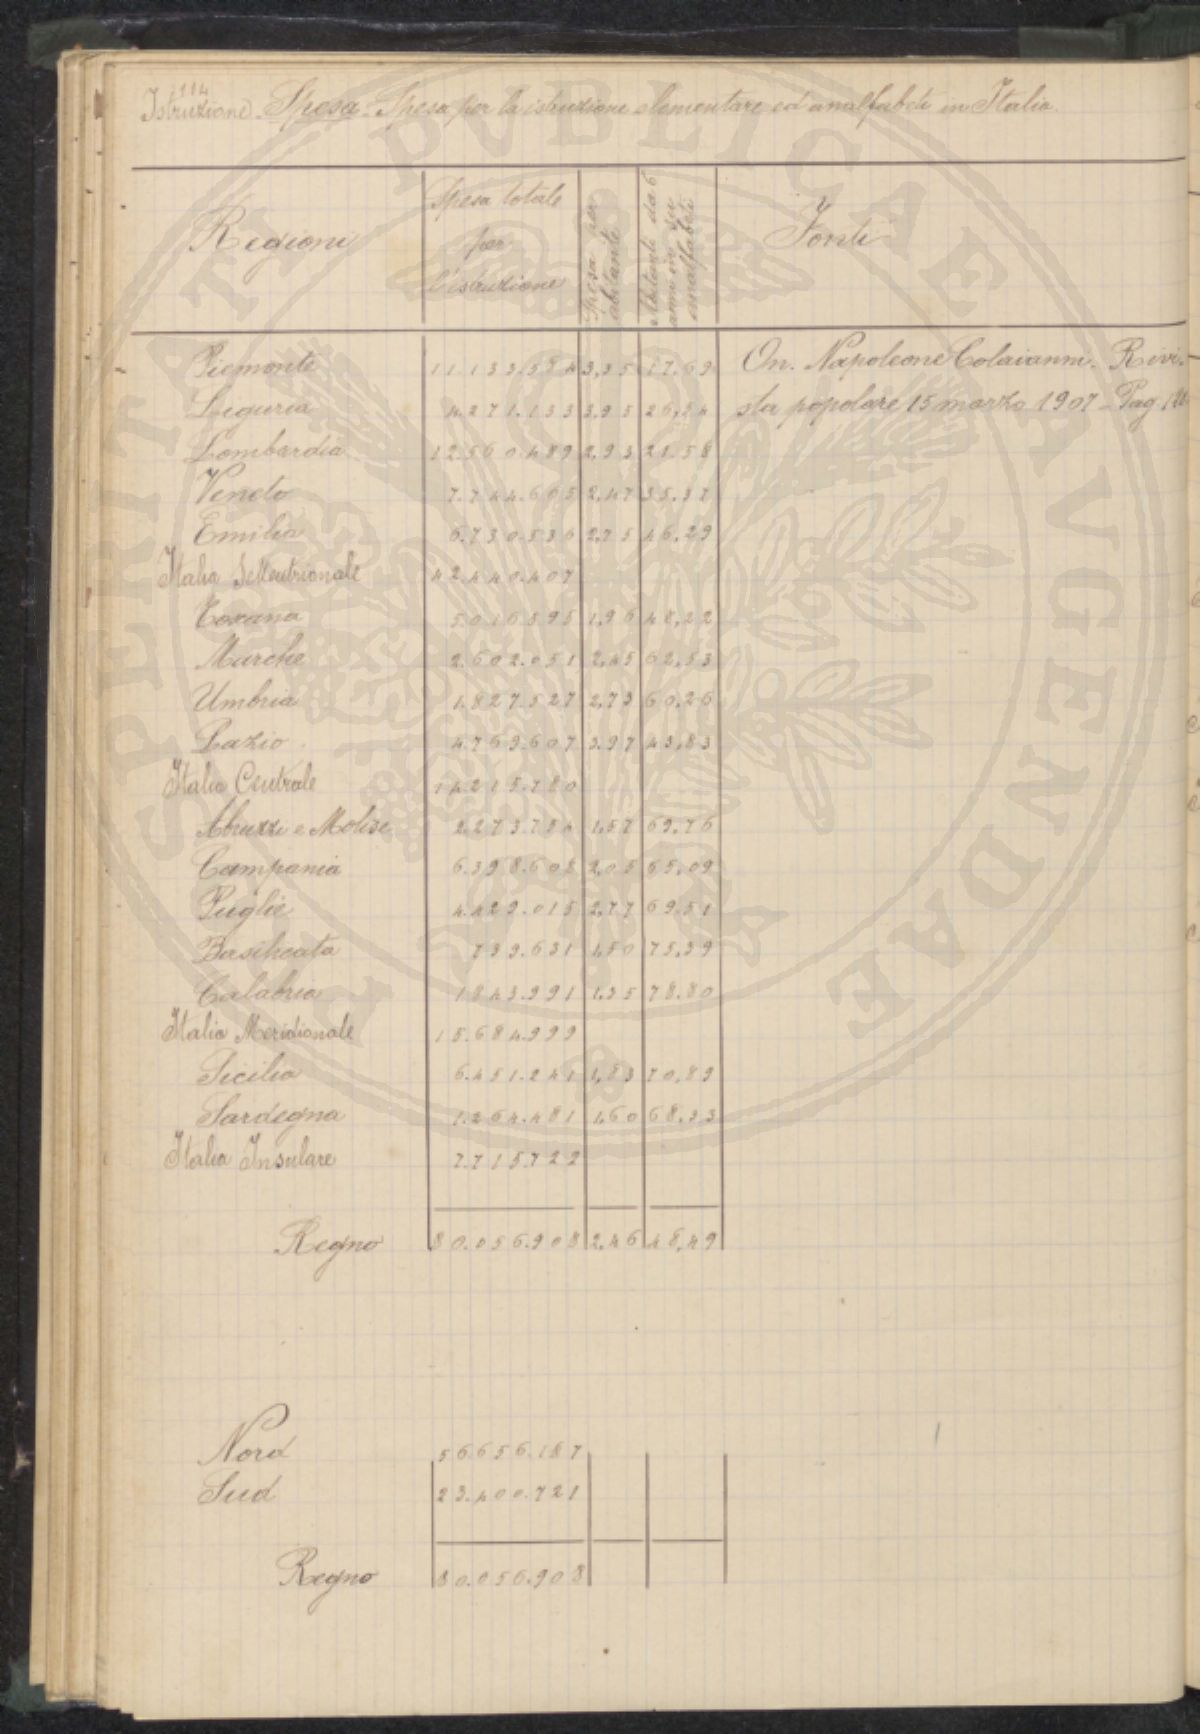 114
Istruzione - Spesa - Spesa per la istruzione elementare ed analfabeti in Italia.
Regioni | Spesa totale per l'istruzione | Spesa per abitante | Abitanti da 6 anni in su analfabeti | Fonti
Piemonte 11.133.584 3,35 17.69 On. Napoleone Colaianni. Rivi-
Liguria 4.271.133 3.95 26,54 sta popolare 15 marzo 1907 - Pag.
Lombardia 12.560.489 2,93 21.58
Veneto 7.744.665 2,47 35.37
Emilia 6.730.536 2,75 46,29
Italia Settentrionale 42.440.407
Toscana 5.016.595 1,96 48,22
Marche 2.602.051 2,45 62,53
Umbria 1.827.527 2,73 60,26
Lazio 4.769.607 3.97 43,83
Italia Centrale 14.215.780
Abruzzi e Molise 2.273.754 1,57 69,76
Campania 6.398.608 2,05 65,09
Puglie 4.429.015 2,77 69.51
Basilicata 739.631 1,50 75,39
Calabria 1.843.991 1,35 78.80
Italia Meridionale 15.684.999
Sicilia 6.451.241 1,83 70,89
Sardegna 1.264.481 1,60 68,33
Italia Insulare 7.715.722
Regno 80.056.908 2,46 48,49
Nord 56.656.187
Sud 23.400.721
Regno 80.056.908
VERITATI PVBLICAE AVGENDAE PROSPERITATI